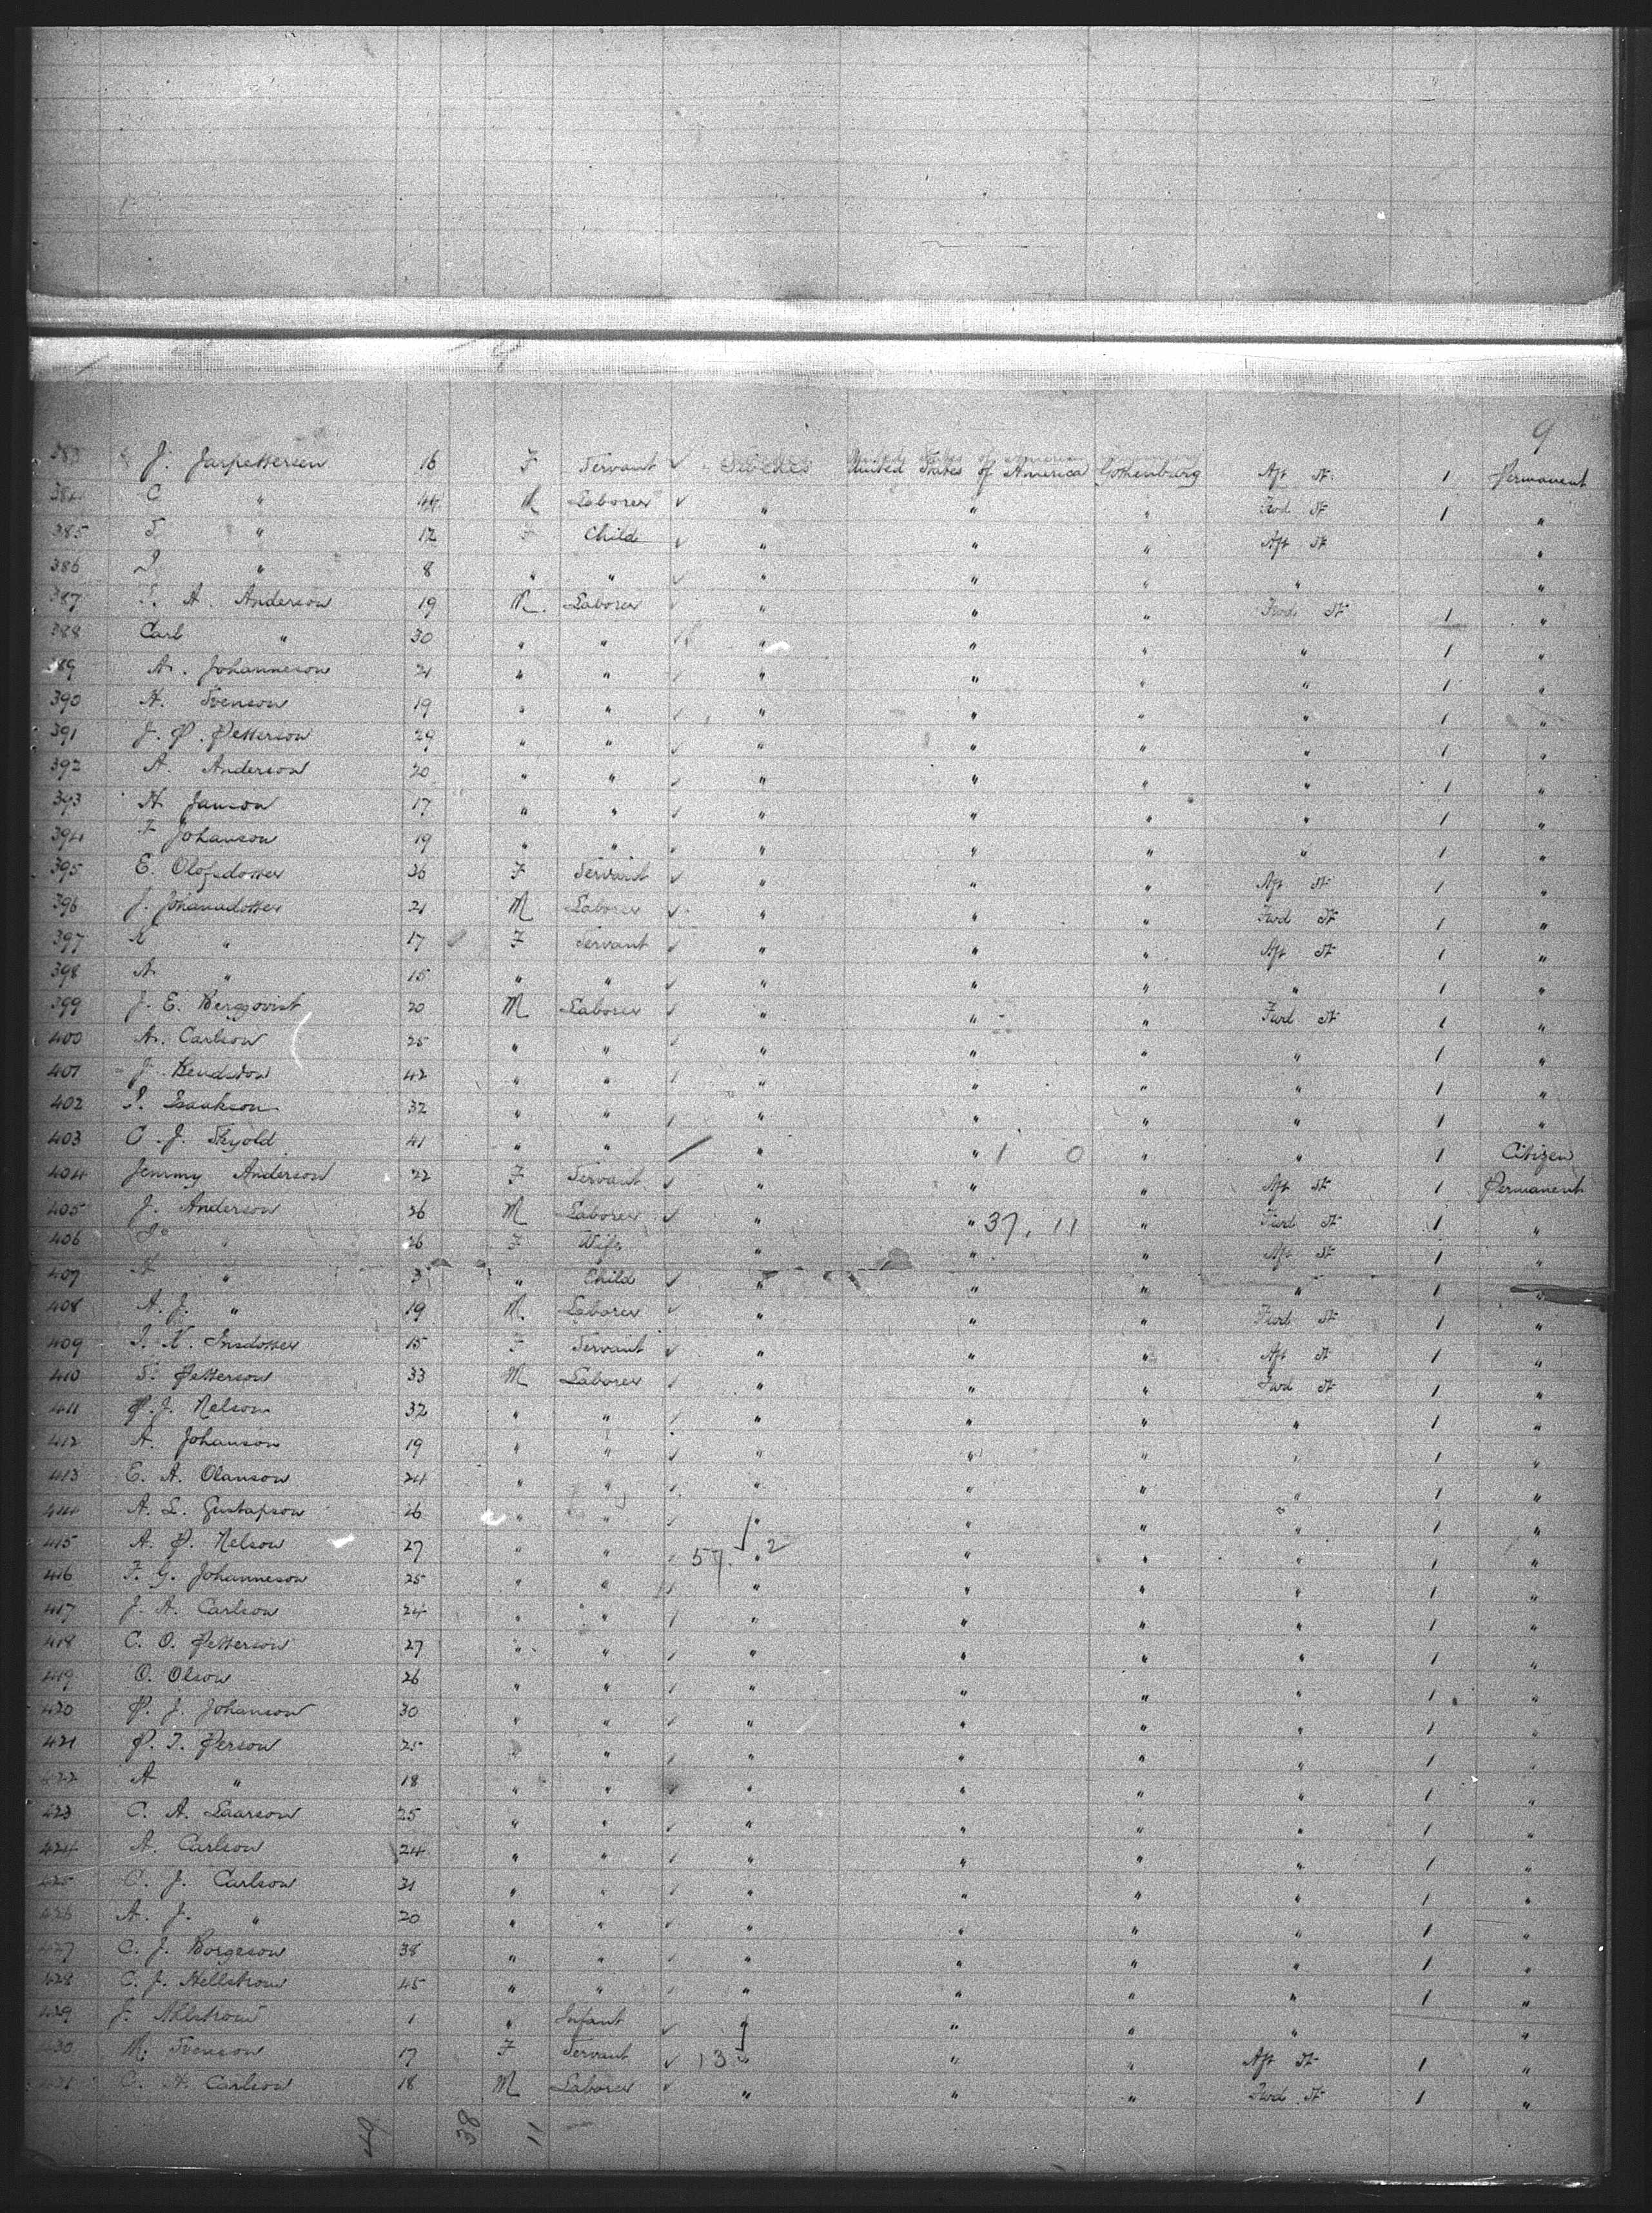 9
383 J. Jarpettersen 16 F Servant ✓ Swedes United States of America Gothenburg Aft St. 1 Permanent
384 C. " 44 M Laborer ✓ " " " Fwd St 1 "
385 " 12 F Child ✓ " " " Aft St "
386 " 8 " " ✓ " " " " "
387 A. Anderson 19 M. Laborer ✓ " " " Fwd St 1 "
388 Carl " 30 " " ✓ " " " " 1 "
389 A. Johanneson 21 " " " " " " 1 "
390 A. Svenson 19 " " ✓ " " " " 1 "
391 J. P. Petterson 29 " " ✓ " " " " 1 "
392 A. Anderson 20 " " ✓ " " " " 1 "
393 A Janson 17 " " ✓ " " " " 1 "
394 F Johanson 19 " " ✓ " " " " 1 "
395 E. Olofsdotter 36 F Servant ✓ " " " Aft St 1 "
396 J. Johansdotter 21 M Laborer ✓ " " " Fwd St 1 "
397 " 17 F Servant ✓ " " " Aft St 1 "
398 A " 15 " " ✓ " " " " 1 "
399 J. E. Bergqvist 20 M Laborer ✓ " " " Fwd St 1 "
400 A. Carlson 25 " " ✓ " " " " 1 "
401 J. 42 " " ✓ " " " " 1 "
402 Isaakson 32 " " ✓ " " " " 1 "
403 C. J. 41 " " / " " 1 0 " " 1 Citizen
404 Jenny Anderson 22 F Servant ✓ " " " Aft St 1 Permanent
405 J. Anderson 26 M Laborer ✓ " " 37. 11 " Fwd St 1 "
406 " 26 F Wife " " " Aft St 1 "
407 " 3 " Child ✓ " " " " 1 "
408 A. J. " 19 M. Laborer ✓ " " " Fwd St 1 "
409 15 F Servant ✓ " " " Aft St 1 "
410 Petterson 33 M Laborer ✓ " " " Fwd St "
411 P. J. Nelson 32 " " ✓ " " " " 1 "
412 A. Johanson 19 " " ✓ " " " " "
413 E. A. Olanson 24 " " ✓ " " " " 1 "
414 A. L. Gustafson 26 " " ✓ " " " " 1 "
415 A. P. Nelson 27 " " ✓ 57. 2 " " " " 1 "
416 F. G. Johanneson 25 " " ✓ " " " " 1 "
417 J. A. Carlson 24 " " ✓ " " " " 1 "
418 C. O. Petterson 27 " " ✓ " " " " 1 "
419 O. Olson 26 " " ✓ " " " " 1 "
420 P. J. Johanson 30 " " ✓ " " " " 1 "
421 P. J. Person 25 " " ✓ " " " " 1 "
422 A " 18 " " ✓ " " " " 1 "
423 C. A. Laarson 25 " " ✓ " " " " 1 "
424 A. Carlson 24 " " ✓ " " " " 1 "
425 C. J. Carlson 21 " " ✓ " " " " 1 "
426 A. J. " 20 " " ✓ " " " " 1 "
427 C. J. Borgeson 38 " " ✓ " " " " 1 "
428 C. J. Hellstrom 45 " " ✓ " " " " 1 "
429 J. Ahlstrom 1 " Infant ✓ " " " " "
430 M. Svenson 17 F Servant ✓ 13 " " " Aft St 1 "
431 C. A. Carlson 18 M Laborer ✓ " " " Fwd St 1 "
49 38 11